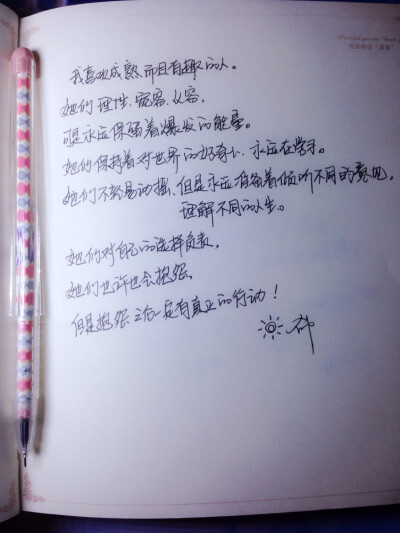 我喜欢成熟而且有趣的人。
她们理性,宽容,从容,
可是永远保留着爆发的能量。
她们保持着对世界的好奇心,永远在学习。
她们不轻易动摇,但是永远准备着倾听不同的意见,
理解不同的人生。
她们对自己的选择负责,
她们也许也会抱怨,
但是抱怨之后一定有真正的行动!